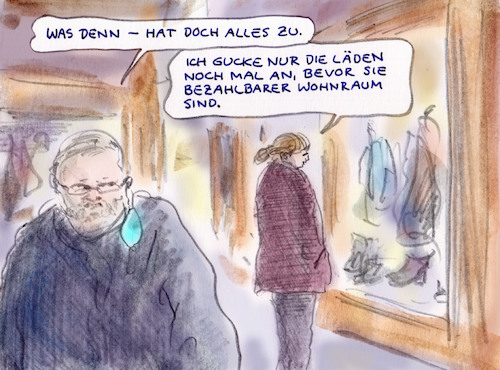 WAS DENN – HAT DOCH ALLES ZU.
ICH GUCKE NUR DIE LÄDEN
NOCH MAL AN, BEVOR SIE
BEZAHLBARER WOHNRAUM
SIND.